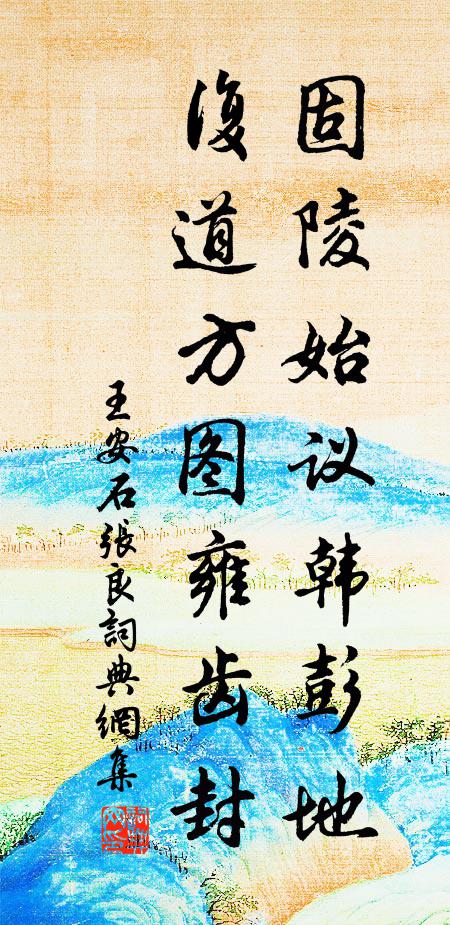 固陵始议韩彭地
復道方图雍齿封
王安石張良詞典網集